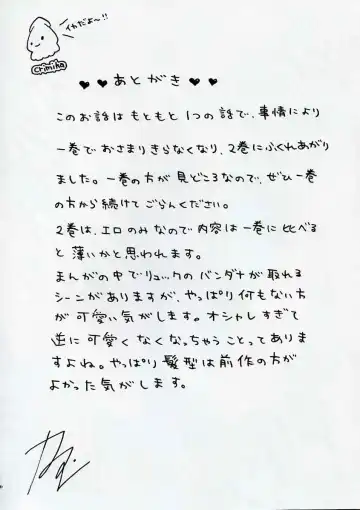 イカだよ〜!!
crimiha
♥♥あとがき♥♥
このお話はもともと1つの話で、事情により
一巻でおさまりきらなくなり、2巻にふくれあがり
ました。一巻の方が見どころなので、ぜひ一巻
の方から続けてごらんください。
2巻は、エロのみなので内容は一巻に比べる
と薄いかと思われます。
まんがの中でリュックのバンダナが取れる
シーンがありますが、やっぱり何もない方
が可愛い気がします。オシャレしすぎて
逆に可愛くなくなっちゃうことってありま
すよね。やっぱり髪型は前作の方が
よかった気がします。